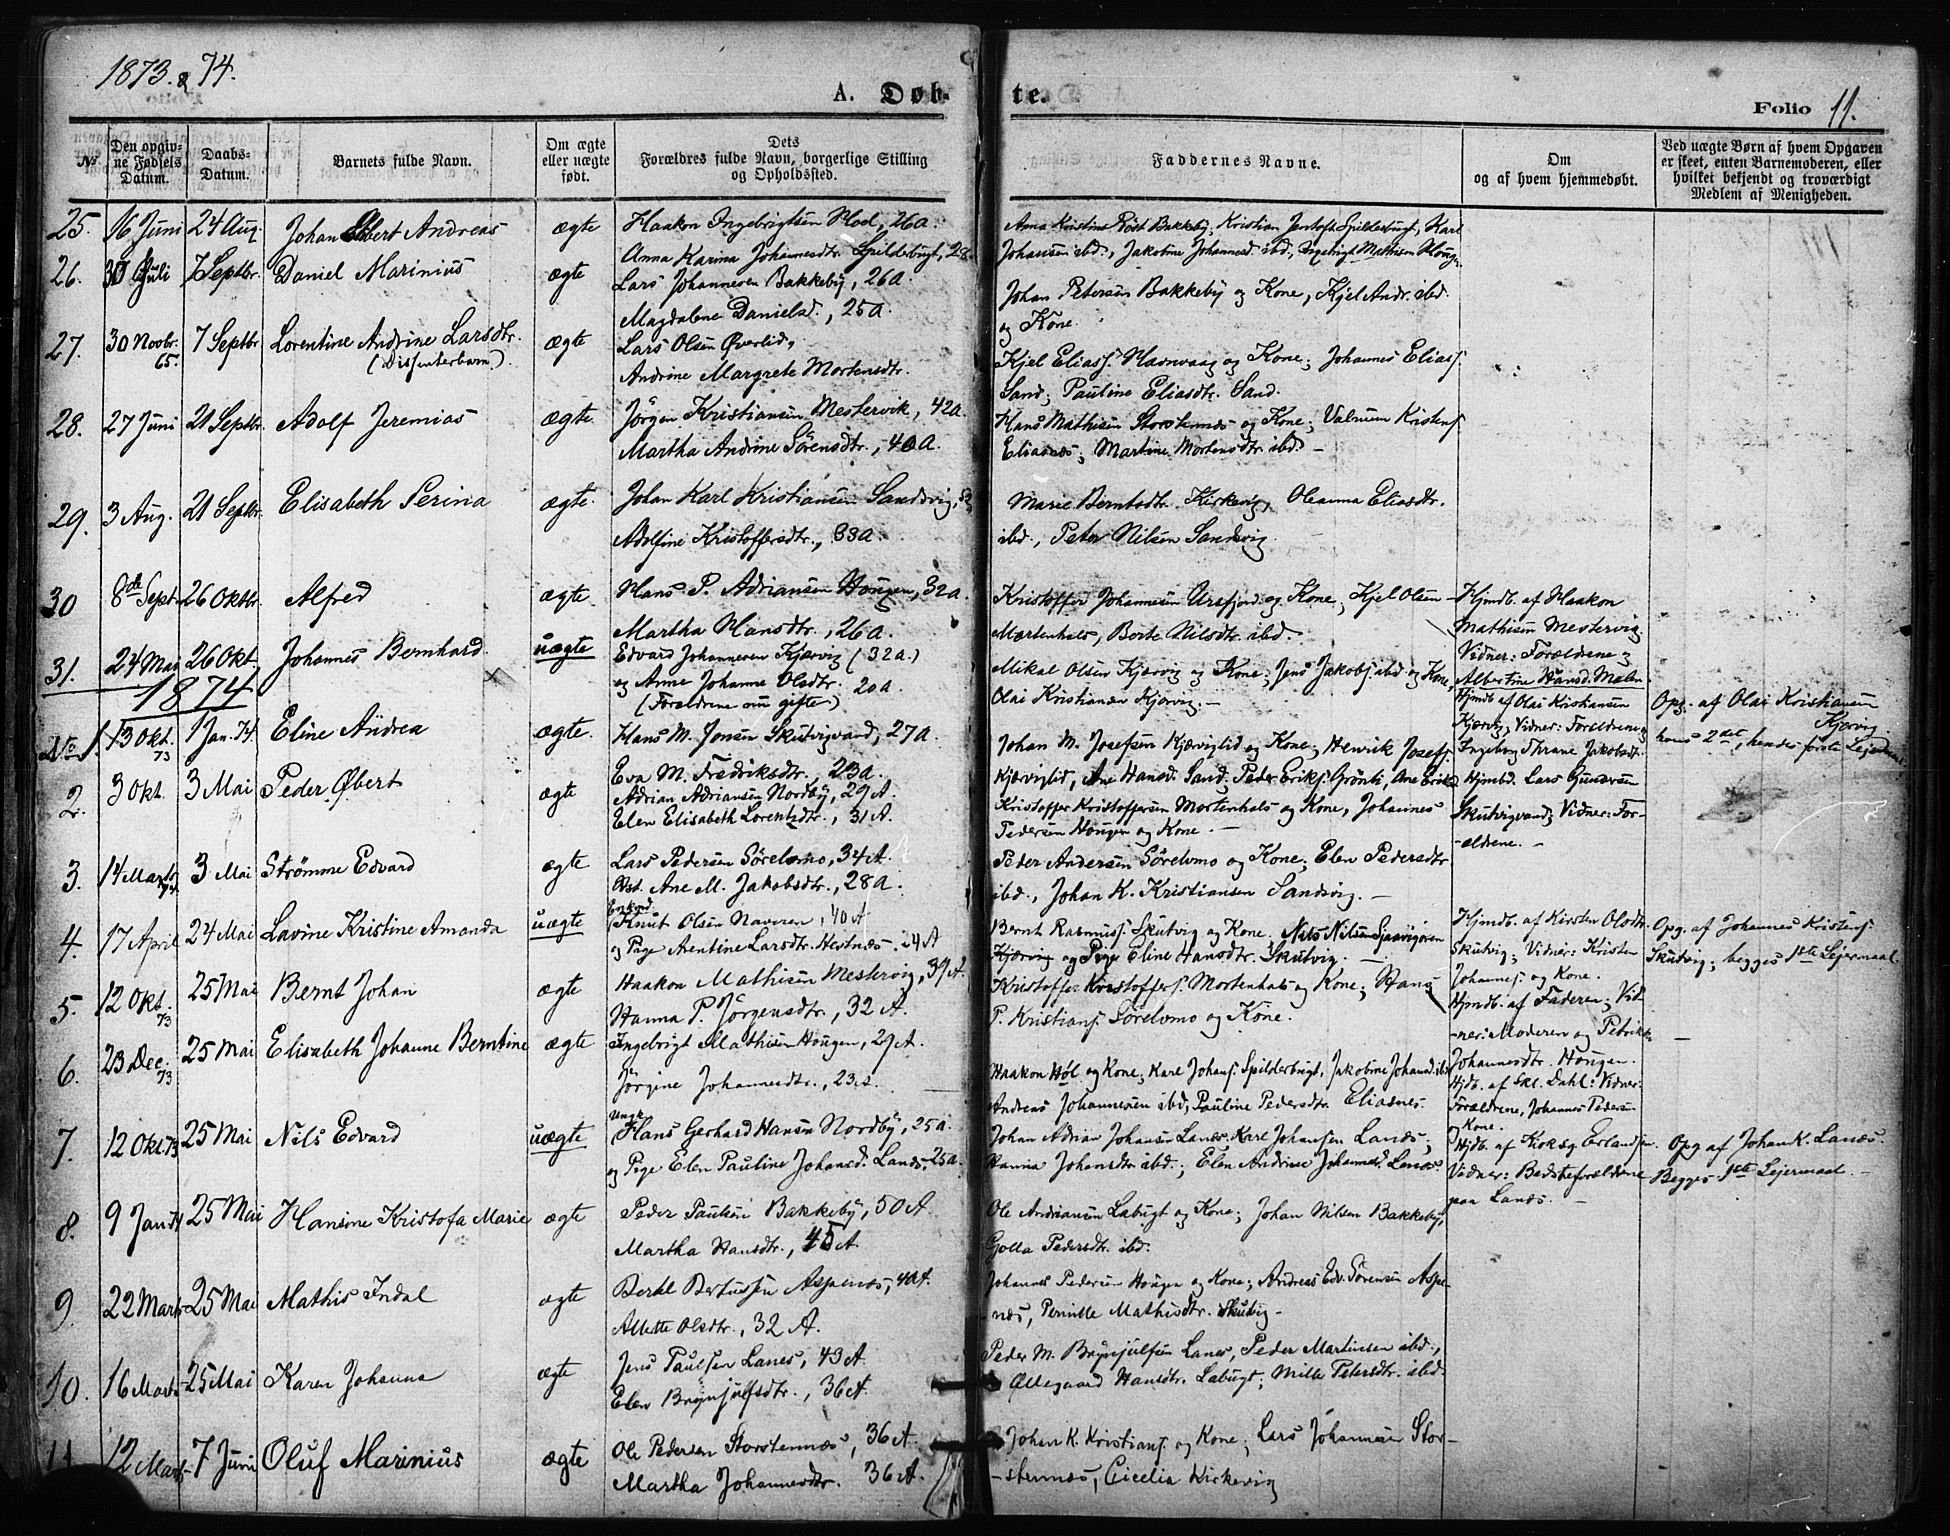 1873 & 74.
A. Døb-
te.
Folio 11.
No
Den opgiv-
ne Fødsels
Datum.
Daabs-
Datum.
Barnets fulde Navn.
Om ægte
eller uægte
født.
Dets
Forældres fulde Navn, borgerlige Stilling
og Opholdssted.
Faddernes Navne.
Om
og af hvem hjemmedøbt.
Ved uægte Børn af hvem Opgaven
er skeet, enten Barnemoderen, eller
hvilket bekjendt og troværdigt
Medlem af Menigheden.
25. 16 Juni 24 Aug. Johan Andreas ægte Haakon Ingebrigtsen 26 a.
Anna Karina Johannesdtr. Spilderbugt, 28.
Anna Kristine Bakkeby, Kristian Jentoft Spilderbugt, Karl
Johansen ibd., Jakobine Johannesd. ibd., Ingebrigt Mathisen
26. 30 Juli 7 Septbr. Daniel Marinius ægte Lars Johannesen Bakkeby, 26 a.
Magdalene Danielsd., 25 a.
Johan Petersen Bakkeby og Kone, Kjel Andr. ibd.
og Kone.
27. 30 Novbr. 65. 7 Septbr Lorentine Andrine Larsdtr.
(Dissenterbarn.) ægte Lars Olsen Øverlid,
Andrine Margrete Mortensdtr.
Kjel Eliass. Havnvaag og Kone; Johannes Eliass.
Sand; Pauline Eliasdtr. Sand.
28. 27 Juni 21 Septbr. Adolf Jeremias ægte Jörgen Kristiansen Mestervik, 42 a.
Martha Andrine Sörensdtr., 40 a.
Hans Mathisen Storstennes og Kone; Kristens.
Eliasnes; Martine Mortensdtr. ibd. -
29. 3 Aug. 21 Septbr. Elisabeth Serina ægte. Johan Karl Kristiansen Sandsvig,
Adolfine Kristoffersdtr., 38 a.
Marie Berntsdtr. Kirkevig, Oleanna Eliasdtr.
ibd., Peter Nilsen Sandsvig.
30 8de Sept. 26 Oktbr. Alfred ægte Hans P. Adriansen Hougen, 32 a.
Martha Hansdtr., 26 a.
Kristoffer Johannesen Ursfjord og Kone, Kjel Olsen
Mortenhals, Berte Nilsdtr. ibd.
Hjmdb. af Haakon
Mathisen Mestervig.
Vidner: Forældrene og
Albertine Hansd. Malen
31. 24 Mai 26 Okt. Johannes Bernhard uægte Edvard Johannesen Kjærvig (32 a.)
og Anne Johanne Olsdtr. 20 a.
(Forældrene nu gifte)
Mikal Olsen Kjærvig og Kone; Jens Jakobs. ibd og Kone,
Olai Kristiansen Kjærvig. -
Hjmdb. af Olai Kristiansen
Kjærvig, Vidner: Forældrene og
Ingeborg Thrane Jakobsdtr.
Opg. af Olai Kristiansen
Kjærvig
hans 2det, hendes første Lejermaal
1874
No 1. 13 Okt. 73 1 Jan. 74. Eline Andrea ægte. Hans M. Jonsen Skutvigvand, 27 a.
Eva M. Fredriksdtr., 23 a.
Johan M. Josefsen Kjærviglid og Kone; Henrik Josefs.
Kjærviglid, Ane Hansd. Sand. Peder Eriks. Grønli, Ane Eriksd.
Hjmbd. Lars Gunersen
Skutvigvand; Vidner: For-
-ældrene. -
2. 3 Okt. 3 Mai Peder Øbert ægte Adrian Adriansen Nordby, 29 A.
Elen Elisabeth Lorentzdtr., 31 A.
Kristoffer Kristoffersen Mortenhals og Kone, Johannes
Pedersen Hougen og Kone. -
3. 14 Marts 74. 3 Mai Strømme Edvard ægte Lars Pedersen Sörelvmo, 34 A.
Ane M. Jakobsdtr., 28 a.
Peder Andersen Sørelvmo og Kone; Elen Pedersdtr
ibd., Johan K. Kristiansen Sandsvig. -
4. 17 April 24 Mai Lavine Kristine Amanda uægte Enkmd. Knut Olsen Naveren, 40 A
og Pige Arentine Larsdtr. Hestnes, 24 A
Bernt Rasmuss. Skutvig og Kone. Nils Nilsen
Kjærvig og Pige Eline Hansdtr. Skutvig. -
Hjmdb. af Kirsten Olsdtr.
Skutvig; Vidner: Kristen
Johannes. og Kone.
Opg. af Johannes Kristens.
Skutvig; begges 1ste Lejermaal
5. 12 Okt. 73 25 Mai Bernt Johan ægte Haakon Mathisen Mestervig, 39 A.
Hanna P. Jörgensdtr., 32 A.
Kristoffer Kristoffers. Mortenhals og Kone; Hans
P. Kristians. Sörelvmo og Kone.
Hjmdb. af Faderen; Vid
ner: Moderen og Petrikke
Johannesdtr. Hougen.
-
6. 23 Dec. 73 25 Mai Elisabeth Johanne Berntine ægte Ingebrigt Mathisen Hougen, 29 A.
Jörgine Johannesdtr., 23 a.
Haakon Hol og Kone, Karl Johans. Spilderbugt, Jakobine Johansd. ibd
Andreas Johannesen ibd, Pauline Pedersdtr. Eliasnes.
Hjdb. af Skl. Dahl: Vidner:
Forældrene, Johannes Peders.
og Kone.
7. 12 Okt. 73 25 Mai Nils Edvard uægte Ungk. Hans Gerhard Hansen Nordby, 25 a.
og Pige Elen Pauline Johansd. Lanes, 25 a.
Johan Adrian Johansen Lanes, Karl Johansen Lanes;
Hanna Johansdtr ibd.; Elen Andrine Johannesd. Lanes.
Hjdb. af Erlandsen.
Vidner: Bedsteforældrene
paa Lanes. -
Opg af Johan K. Lanes.
Begges 1ste Lejermaal. -
8. 9 Jan 74 25 Mai Hansine Kristofa Marie ægte Peder Paulsen Bakkeby, 50 A.
Martha Hansdtr., 45 A.
Ole Andriansen Labugt og Kone; Johan Nilsen Bakkeby,
Golla Pedersdtr. ibd.
9. 22 Marts 25 Mai Mathis Indal ægte Bertel Bertussen Aspenes, 40 A.
Allette Olsdtr., 32 A.
Johannes Pedersen Hougen og Kone; Andreas Edv. Sörensen Aspe
nes, Pernille Mathisdtr. Skutvig -
10. 16 Marts 25 Mai Karen Johanna ægte Jens Paulsen Lanes, 43 A.
Elen Brynjulfsdtr., 36 A.
Peder M. Brynjulfsen Lanes, Peder Martinsen ibd.,
Ollegaard Hansdtr. Labugt; Mille Petersdtr. ibd.
11 12 Marts 7 Juni Oluf Marinius ægte Ole Pedersen Storstennes, 36 A.
Martha Johannesdtr. 36 A.
Johan K. Kristians. og Kone; Lars Johannesen Stor-
-stennes, Cicelia Kirkevig